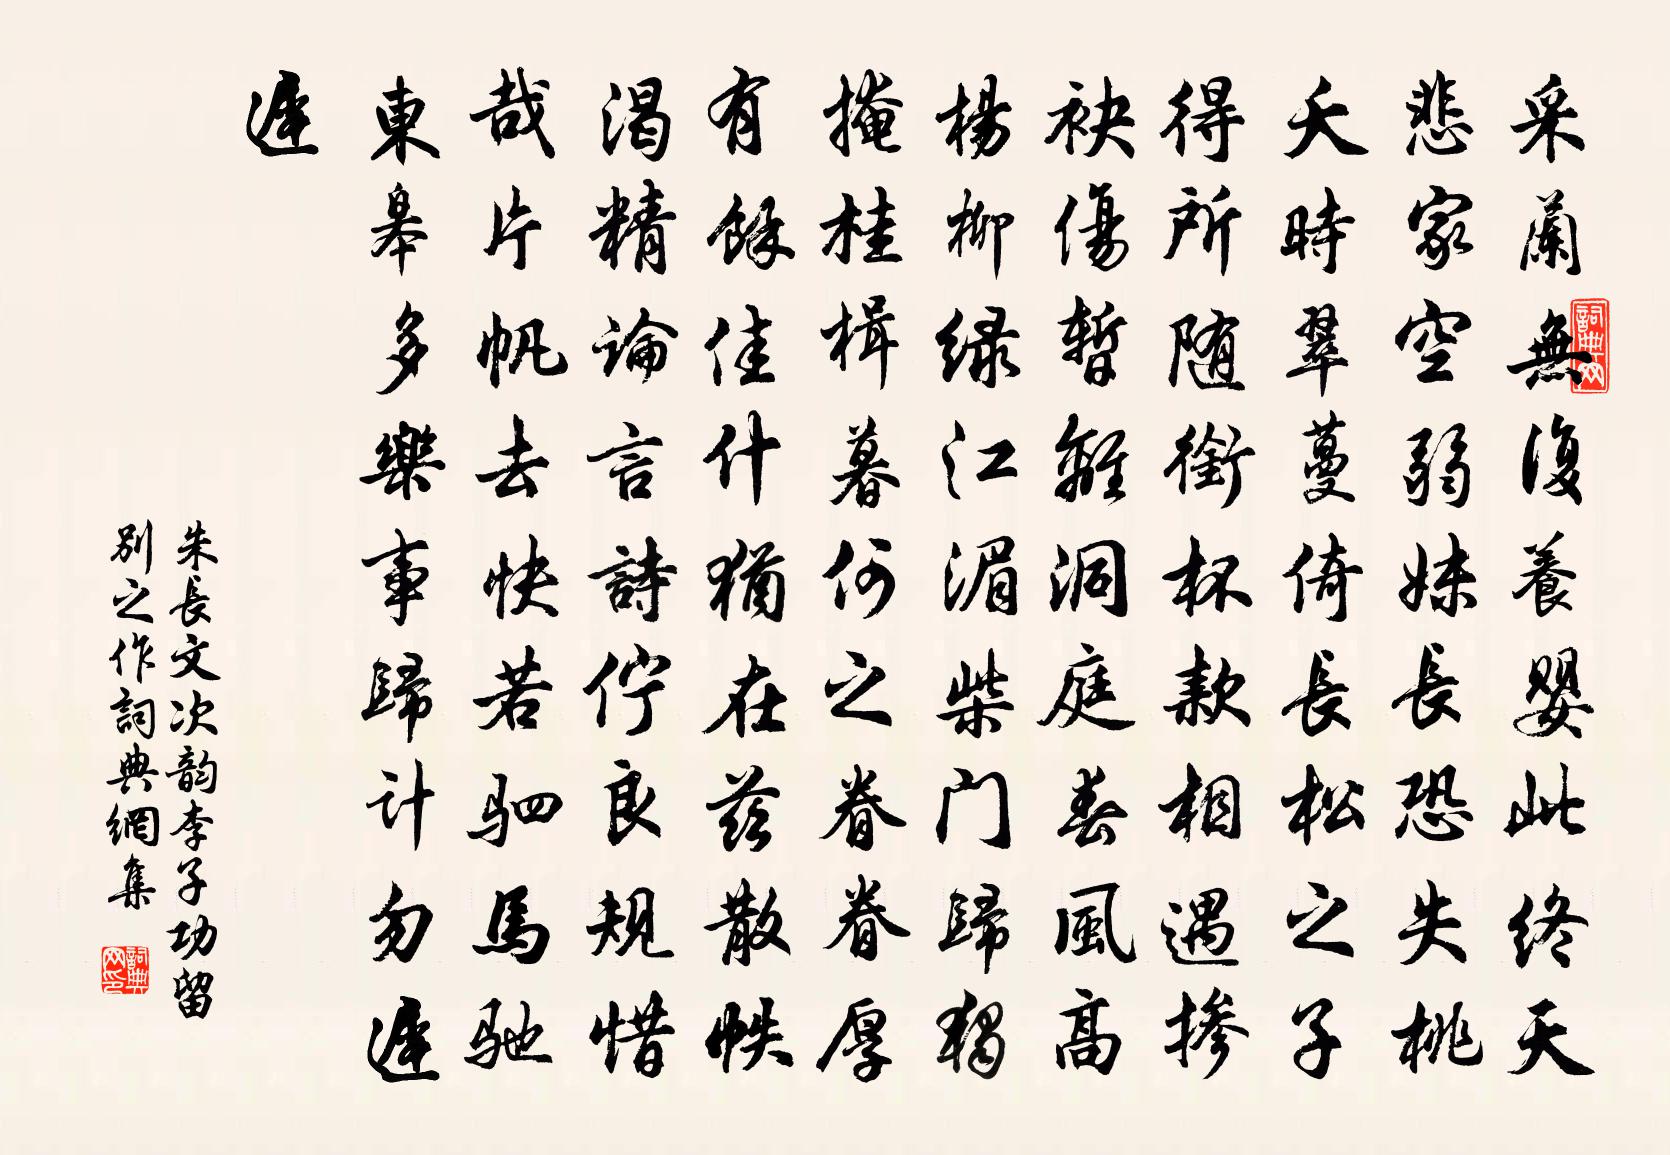 采蘭無復養嬰此终天
悲家空弱妹長恐失桃
夭時翠蔓倚長松之子
得所随銜杯款相遇掺
袂傷暫離洞庭春風高
楊柳绿江湄柴门歸獨
掩桂楫暮何之眷眷厚
有餘佳什猶在茲散帙
渴精論言詩佇良規惜
哉片帆去快若驷馬驰
東皋多樂事歸计勿遲
遲
朱長文次韵李子功留
别之作詞典網集
詞典网
詞典网印